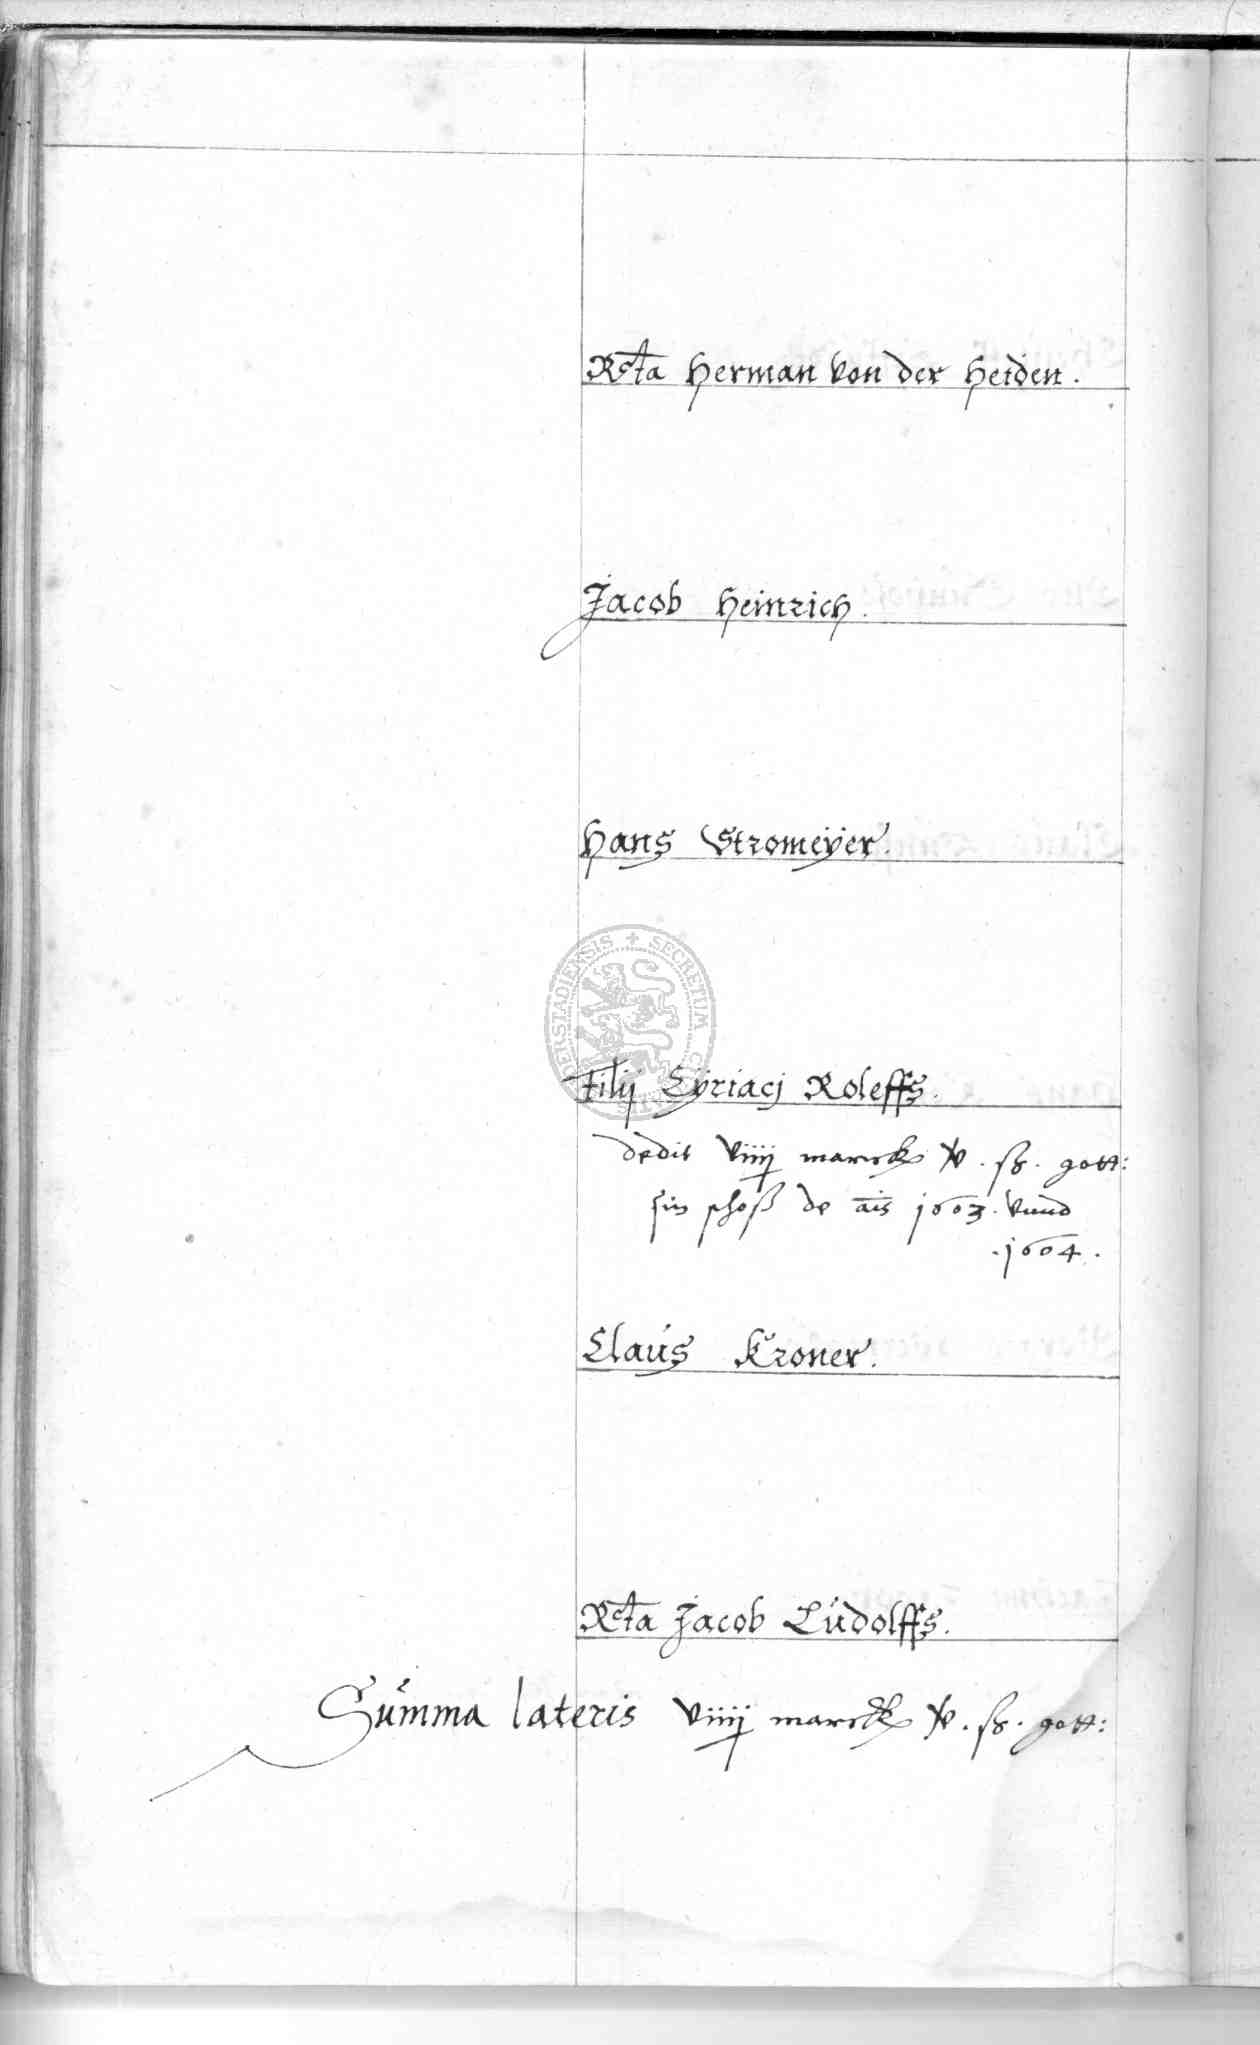 Rcta Herman von der Heiden.
Jacob Heinrich.
Hans Stromeÿer.
Filij Cÿriacj Roleffs.
dedit viiij marck gott:
sin schoß de ais 1603. vnnd
.1604.
Claus Kroner.
Rcta Jacob Ludolffs.
Summa lateris viiij marck gott:
SECRETUM